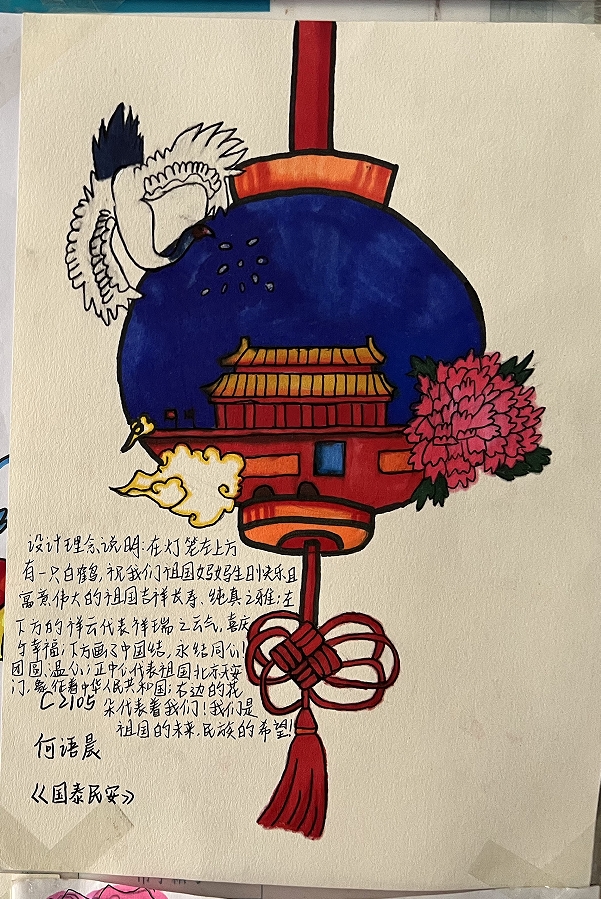 设计理念说明:在灯笼左上方
有一只白鹤,祝我们祖国妈妈生日快乐且
寓意伟大的祖国吉祥长寿、纯真之雅;左
下方的祥云代表祥瑞之云气,喜庆
与幸福;下方画了中国结,永结同心!
团圆,温心;正中心代表祖国北京天安
门,象征着中华人民共和国;右边的花
C2105 朵代表着我们!我们是
祖国的未来.民族的希望!
何语晨
《国泰民安》